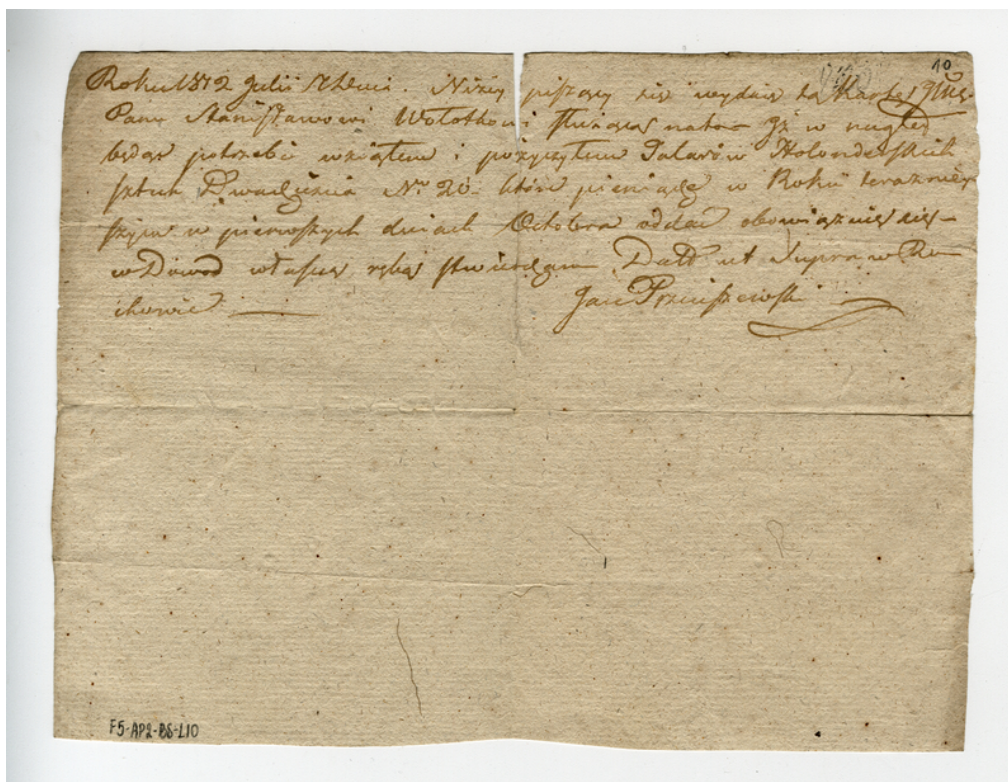 10
Roku 1812 Julii 7 dnia. Niżey piszący się wydaię tą Kartę
Panu Stanisławowi Wołotkowi służącą na to Jż w nagłey
będąc potrzebie wziąłem i pożyczyłem Talarów Holenderskich
sztuk Dwadzieścia Nro 20. które pieniądze w Roku terazniey
szym w pierwszych dniach Octobra oddać obowiązuię się
w Dowod własną ręką stwierdzam Datt ut Supra w
Jan Przeciszewski
F5-AP2-BS-L10